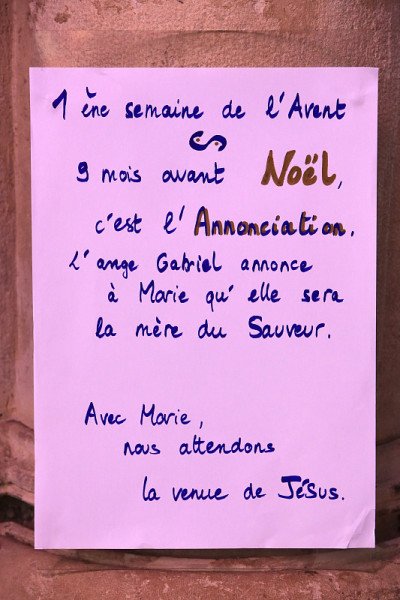 1 ène semaine de l'Avent
9 mois avant Noël,
c'est l'Annonciation.
L'ange Gabriel annonce
à Marie qu'elle sera
la mère du Sauveur.
Avec Marie,
nous attendons
la venue de Jésus.